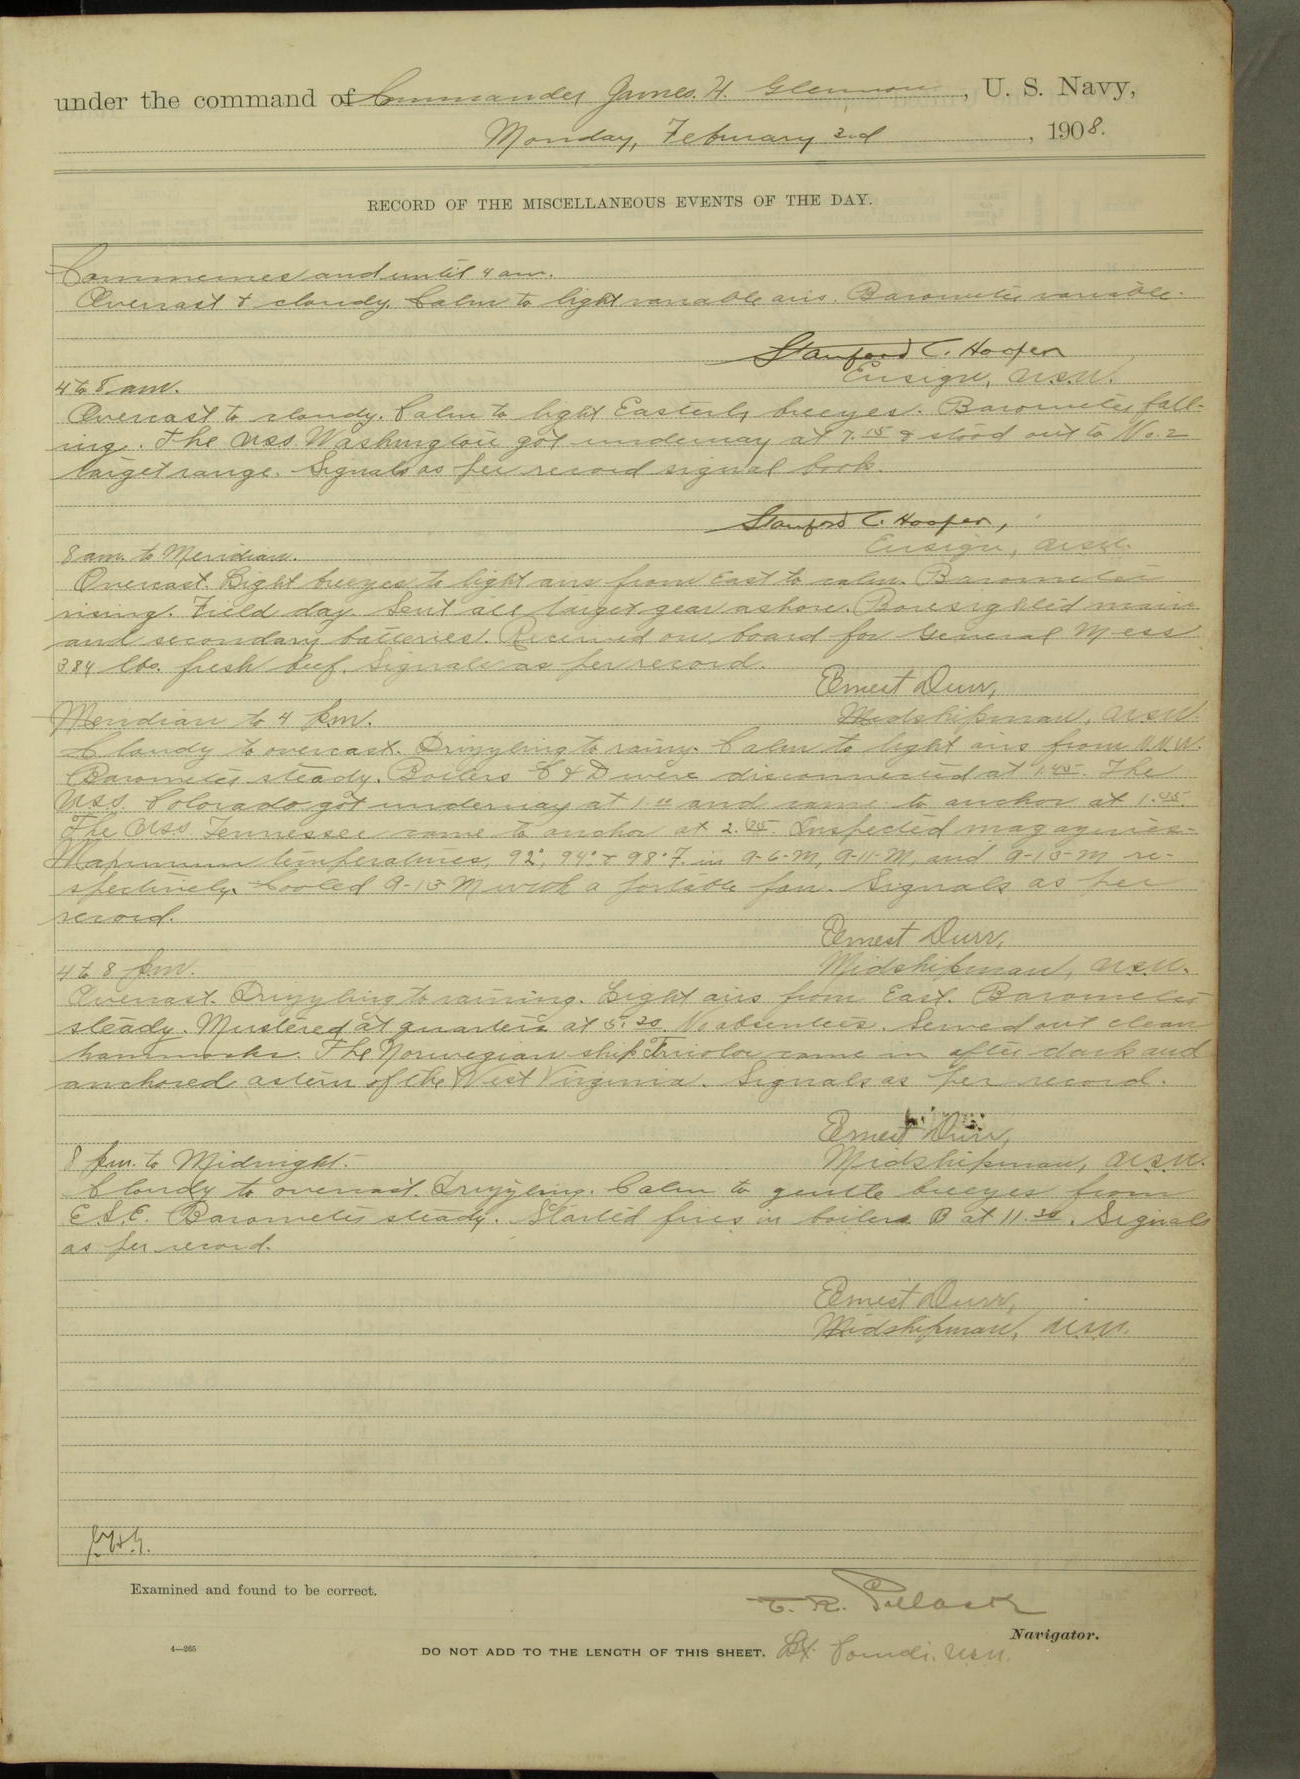 under the command of Commander James. H. Glennon, U. S. Navy,
Monday, February 3rd, 1908.
RECORD OF THE MISCELLANEOUS EVENTS OF THE DAY.
Commences and until 4 am.
Overcast & cloudy. Calm to light variable airs. Barometer variable.
Stanford C. Hooper
Ensign, U.S.N.
4 to 8 am.
Overcast to cloudy. Calm to light Easterly breezes. Barometer fall-
ing. The USS. Washington got underway at 7.15 & stood out to No. 2
target range. Signals as per record signal book.
Stanford C. Hooper,
Ensign, U.S.N.
8 am. to Meridian.
Overcast. Light breezes to light airs from East to calm. Barometer
rising. Field day. Sent all target gear ashore. Boresighted main
and secondary batteries. Received on board for General Mess
384 lbs. fresh beef. Signals as per record.
Ernest Durr,
Midshipman, U.S.N.
Meridian to 4 p.m.
Cloudy to overcast. Drizzling to rainy. Calm to light airs from N.N.W.
Barometer steady. Boilers C & D were disconnected at 1.45. The
USS. Colorado got underway at 1 and came to anchor at 1.
The USS. Tennessee came to anchor at 2. Inspected magazines-
Maximum temperatures, 92°, 94° & 98° F. in 9-6-M, 9-11-M, and 9-13-M re-
spectively. Cooled 9-13-M with a portable fan. Signals as per
record.
Ernest Durr,
Midshipman, U.S.N.
4 to 8 p.m.
Overcast. Drizzling to raining. Light airs from East. Barometer
steady. Mustered at quarters at 5.30. No absentees. Served out clean
hammocks. The Norwegian ship came in after dark and
anchored astern of the West Virginia. Signals as per record.
Ernest Durr,
Midshipman, U.S.N.
8 p.m. to Midnight.
Cloudy to overcast. Drizzling. Calm to gentle breezes from
E.S.E. Barometer steady. Started fires in boilers B at 11.30. Signals
as per record.
Ernest Durr,
Midshipman, U.S.N.
J.H.G.
Examined and found to be correct.
E. R. Pollock
Navigator.
4—265
DO NOT ADD TO THE LENGTH OF THIS SHEET. Lt. Comdr. U.S.N.